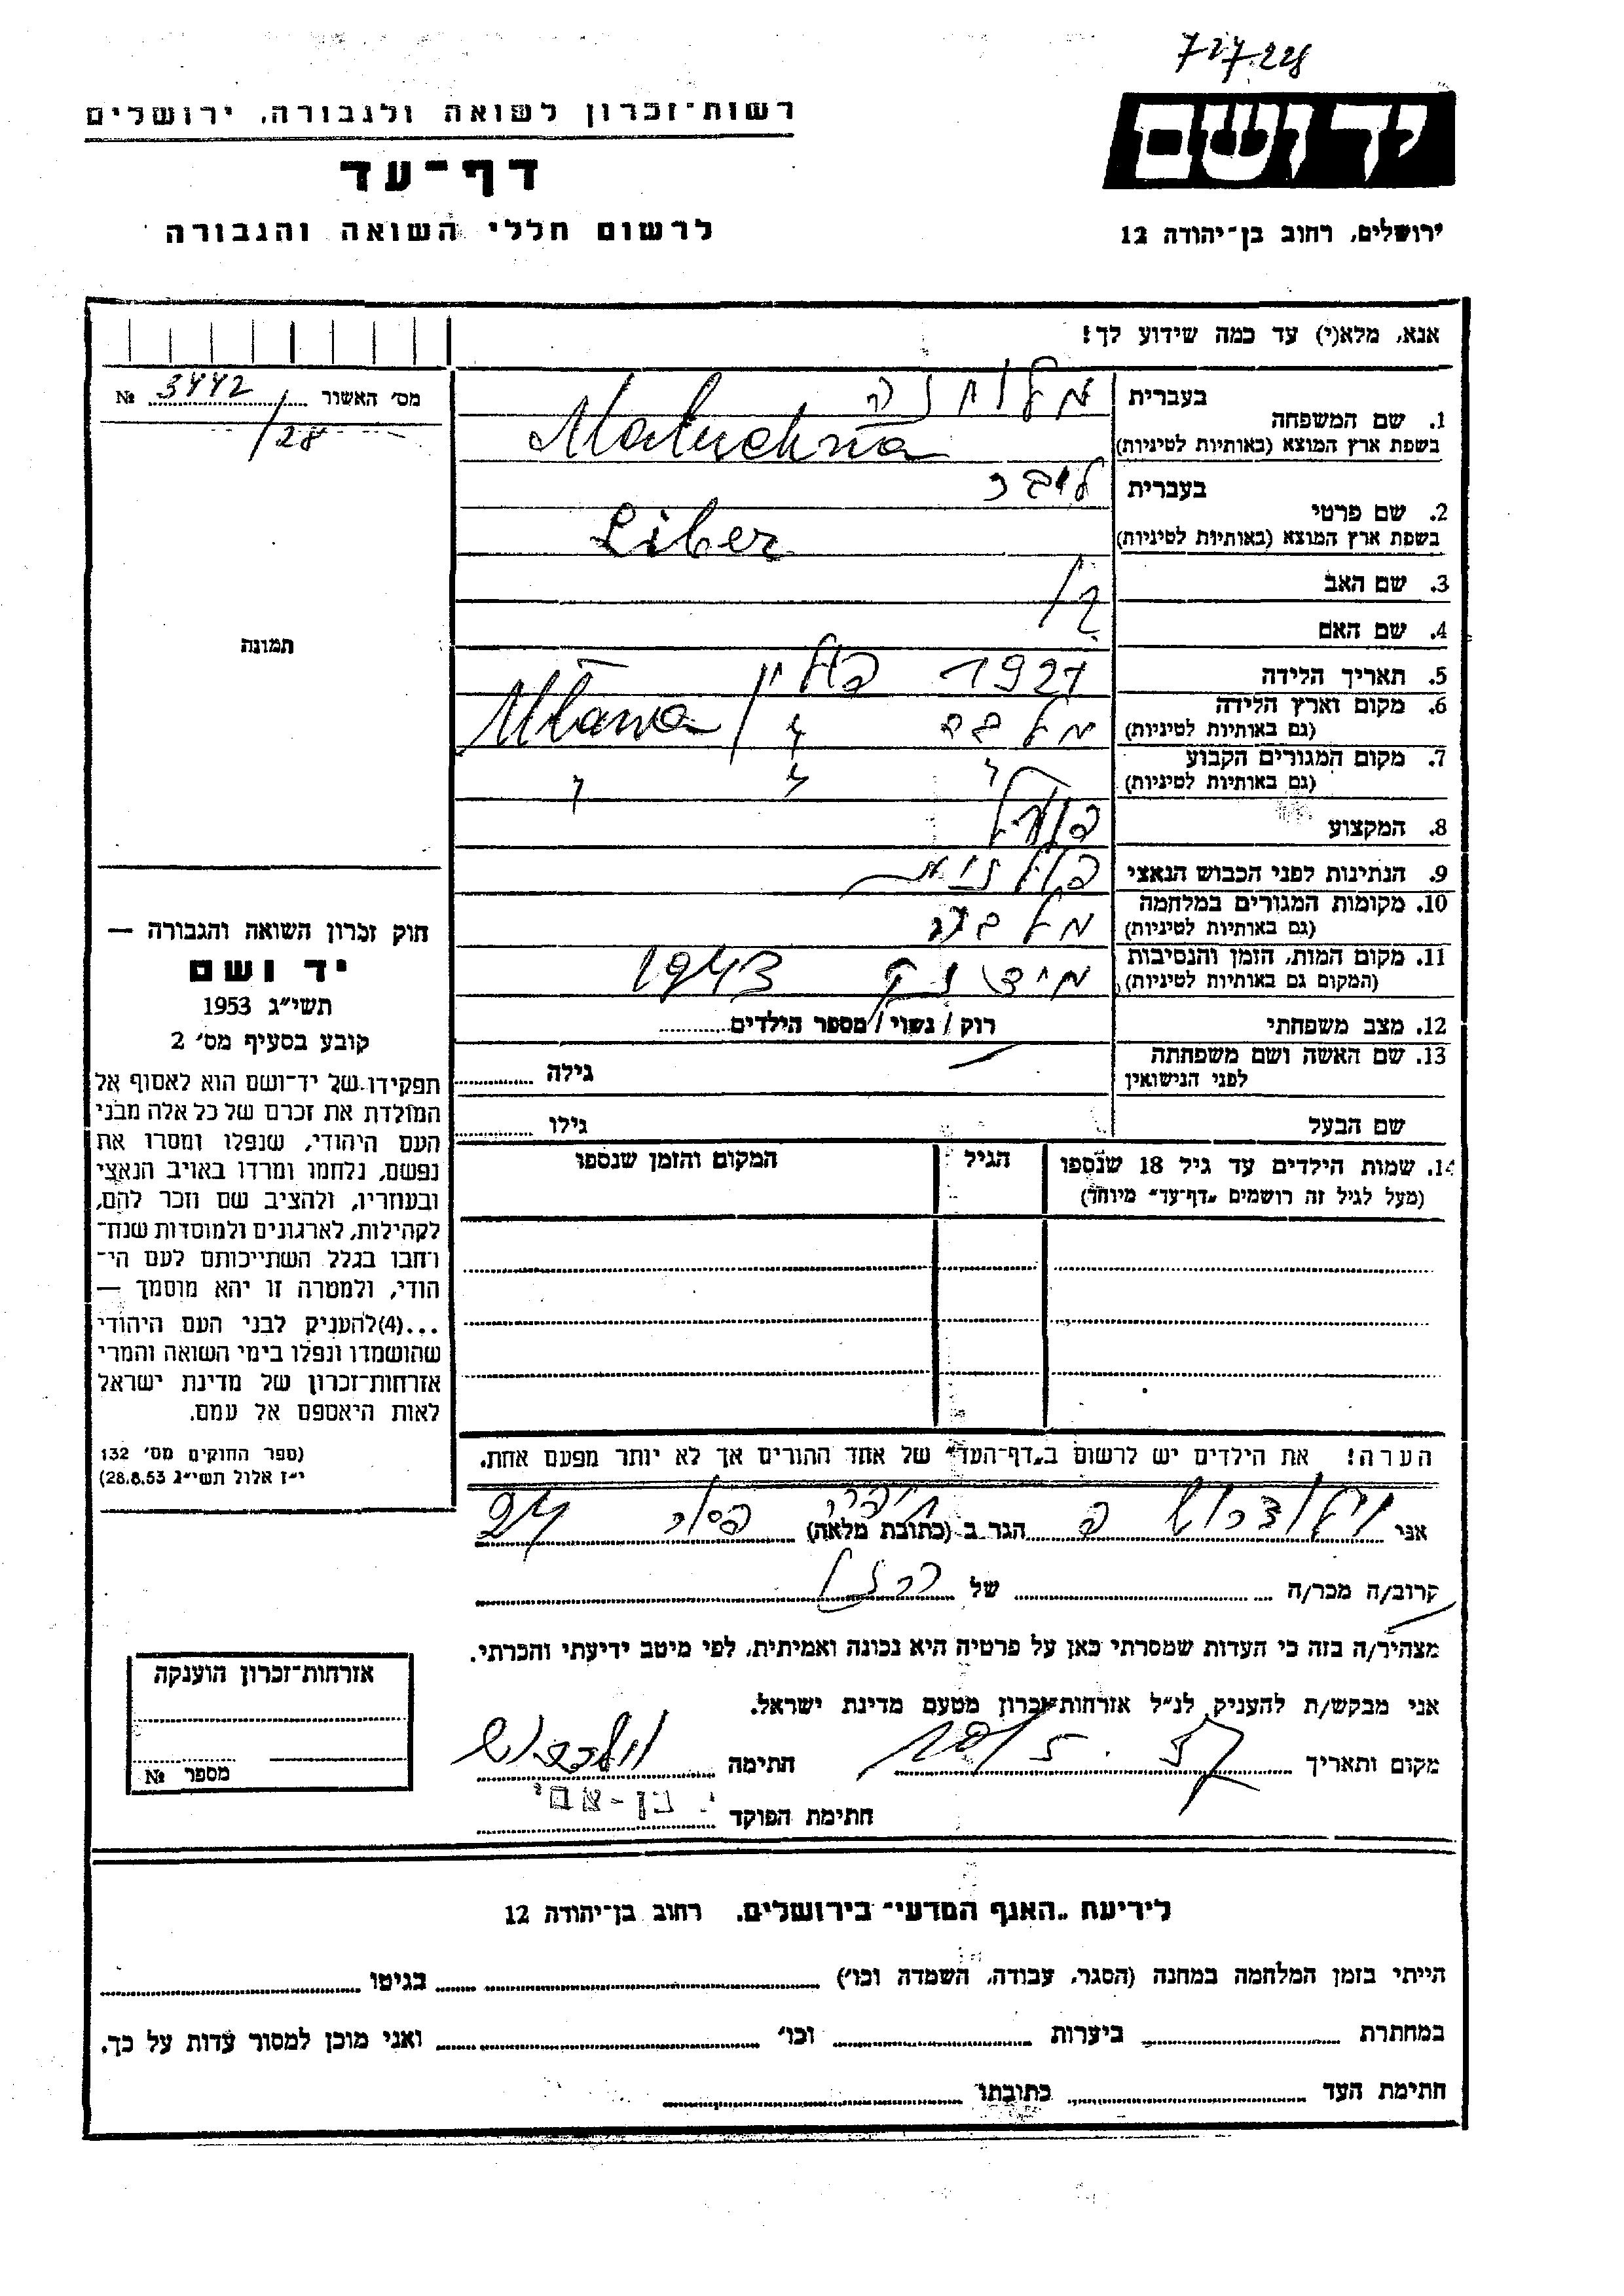 727.228
רשות־זכרון לשואה ולגבורה, ירושלים
יד ושם
דף־עד
לרשום חללי השואה והגבורה
ירושלים, רחוב בן־יהודה 12
אנא, מלא(י) עד כמה שידוע לך!
מס׳ האשור № 3442/28
1. שם המשפחה
בעברית
בשפת ארץ המוצא (באותיות לטיניות) Maluchna
2. שם פרטי
בעברית ליבר
בשפת ארץ המוצא (באותיות לטיניות) Liber
3. שם האב
4. שם האם
5. תאריך הלידה 1921
6. מקום וארץ הלידה
(גם באותיות לטיניות) Mława
7. מקום המגורים הקבוע
(גם באותיות לטיניות)
8. המקצוע פועל
9. הנתינות לפני הכבוש הנאצי
10. מקומות המגורים במלחמה
(גם באותיות לטיניות)
11. מקום המות, הזמן והנסיבות
(המקום גם באותיות לטיניות) 1943
12. מצב משפחתי רוק / נשוי / מספר הילדים
13. שם האשה ושם משפחתה
לפני הנישואין גילה
שם הבעל גילו
14. שמות הילדים עד גיל 18 שנספו
(מעל לגיל זה רושמים „דף־עד״ מיוחד)
הגיל
המקום והזמן שנספו
תמונה
חוק זכרון השואה והגבורה —
יד ושם
תשי״ג 1953
קובע בסעיף מס׳ 2
תפקידו של יד־ושם הוא לאסוף אל
המולדת את זכרם של כל אלה מבני
העם היהודי, שנפלו ומסרו את
נפשם, נלחמו ומרדו באויב הנאצי
ובעוזריו, ולהציב שם וזכר להם,
לקהילות, לארגונים ולמוסדות שנח־
רחבו בגלל השתייכותם לעם הי־
הודי, ולמטרה זו יהא מוסמך —
...(4)להעניק לבני העם היהודי
שהושמדו ונפלו בימי השואה והמרי
אזרחות־זכרון של מדינת ישראל
לאות היאספם אל עמם.
(ספר החוקים מס׳ 132
י״ז אלול תשי״ג 28.8.53)
הערה! את הילדים יש לרשום ב„דף־העד״ של אחד ההורים אך לא יותר מפעם אחת.
אני הגר ב (כתובת מלאה) 24
קרוב/ה מכר/ה של
מצהיר/ה בזה כי העדות שמסרתי כאן על פרטיה היא נכונה ואמיתית, לפי מיטב ידיעתי והכרתי.
אני מבקש/ת להעניק לנ״ל אזרחות־זכרון מטעם מדינת ישראל.
מקום ותאריך חתימה
חתימת הפוקד י. בן-עמי
אזרחות־זכרון הוענקה
מספר №
לידיעת „האגף המדעי״ בירושלים, רחוב בן־יהודה 12
הייתי בזמן המלחמה במחנה (הסגר, עבודה, השמדה וכו׳) בגיטו
במחתרת ביערות וכו׳ ואני מוכן למסור עדות על כך.
חתימת העד כתובתו